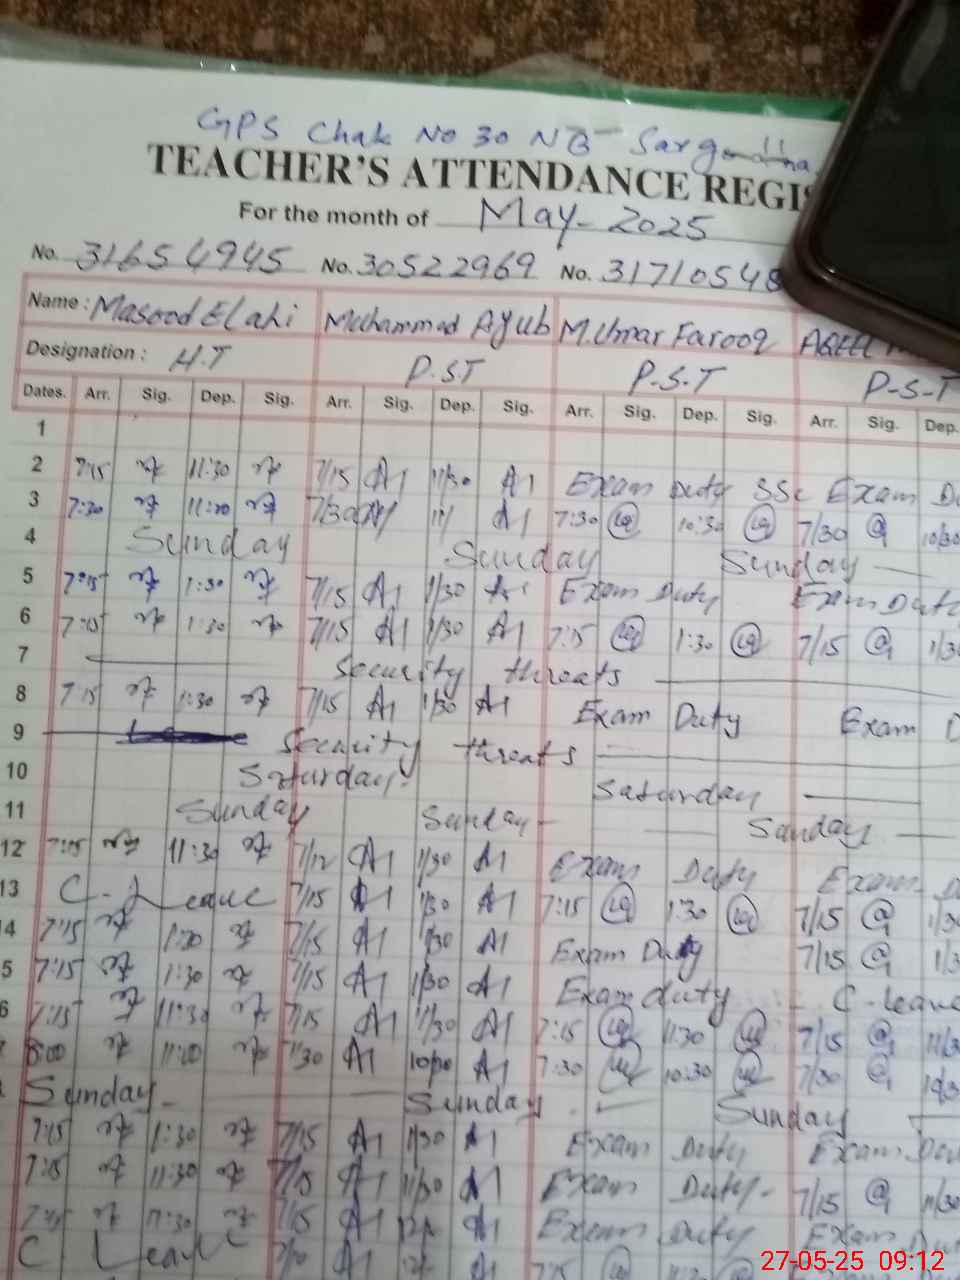 GPS Chak No 30 NB Sargodha
TEACHER'S ATTENDANCE REGIS
For the month of May-2025
No. 31654945 No. 30522969 No. 3171054
Name: Masood Elahi Muhammad Ayub M.Umar Farooq
Designation: H.T P.S.T P.S.T P-S-T
Dates. Arr. Sig. Dep. Sig. Arr. Sig. Dep. Sig. Arr. Sig. Dep. Sig. Arr. Sig. Dep.
1
2 7:15 11:30 7/15 A1 11/30 A1 Exam Duty SSc Exam
3 7:30 11:00 7/30 A1 7:30 10:30 7/30 10/30
4 Sunday Sunday Sunday
5 7:15 1:30 7/15 A1 1/30 Exam Duty Exam Duty
6 7:15 1:30 7/15 A1 1/30 A1 7:15 1:30 7/15 1/3
7 Security threats
8 7:15 1:30 7/15 A1 1/30 A1 Exam Duty Exam
9 Security threats
10 Saturday Saturday
11 Sunday Sunday Sunday
12 7:15 11:30 A1 1/30 A1 Exam Duty Exam
13 C-Leave 7/15 A1 1/30 A1 7:15 1:30 7/15 1/3
4 7:15 1:30 7/15 A1 1/30 A1 Exam Duty 7/15 1/3
5 7:15 1:30 7/15 A1 1/30 A1 Exam duty C-leave
6 7:15 11:30 7/15 A1 11/30 A1 7:15 11:30 7/15 11/3
8:00 11:00 7/30 A1 10/30 A1 7:30 10:30 7/30 10/3
Sunday Sunday Sunday
7:15 1:30 7/15 A1 1/30 A1 Exam Duty Exam
7:15 11:30 7/15 A1 11/30 A1 Exam Duty 7/15 11/30
11:30 7/15 A1 A1 Exam Duty Exam
C Leave A1 A1
27-05-25 09:12